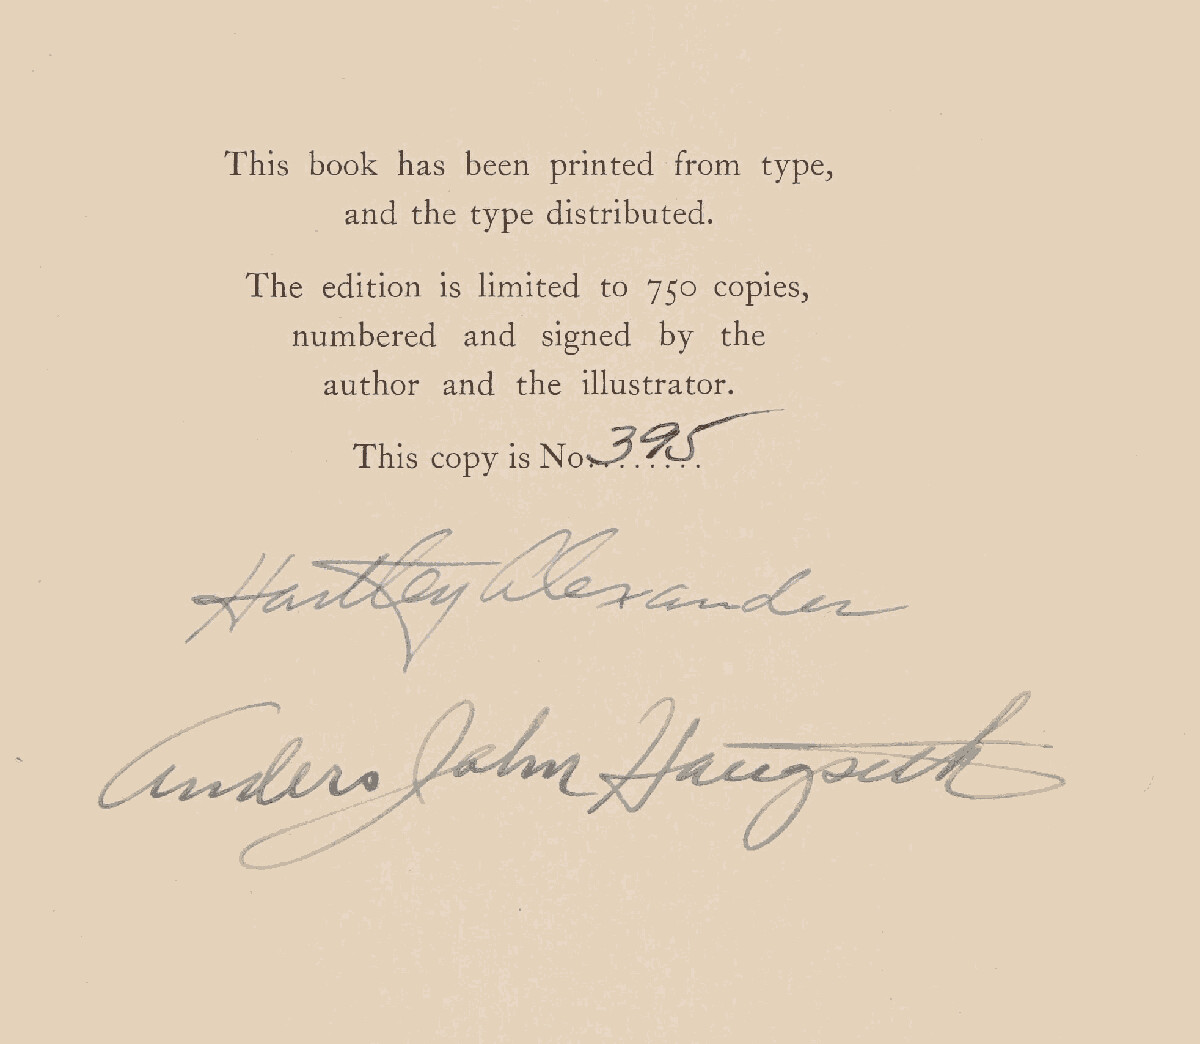 This book has been printed from type,
and the type distributed.
The edition is limited to 750 copies,
numbered and signed by the
author and the illustrator.
This copy is No. 395
Hartley Alexander
Anders John Haugseth